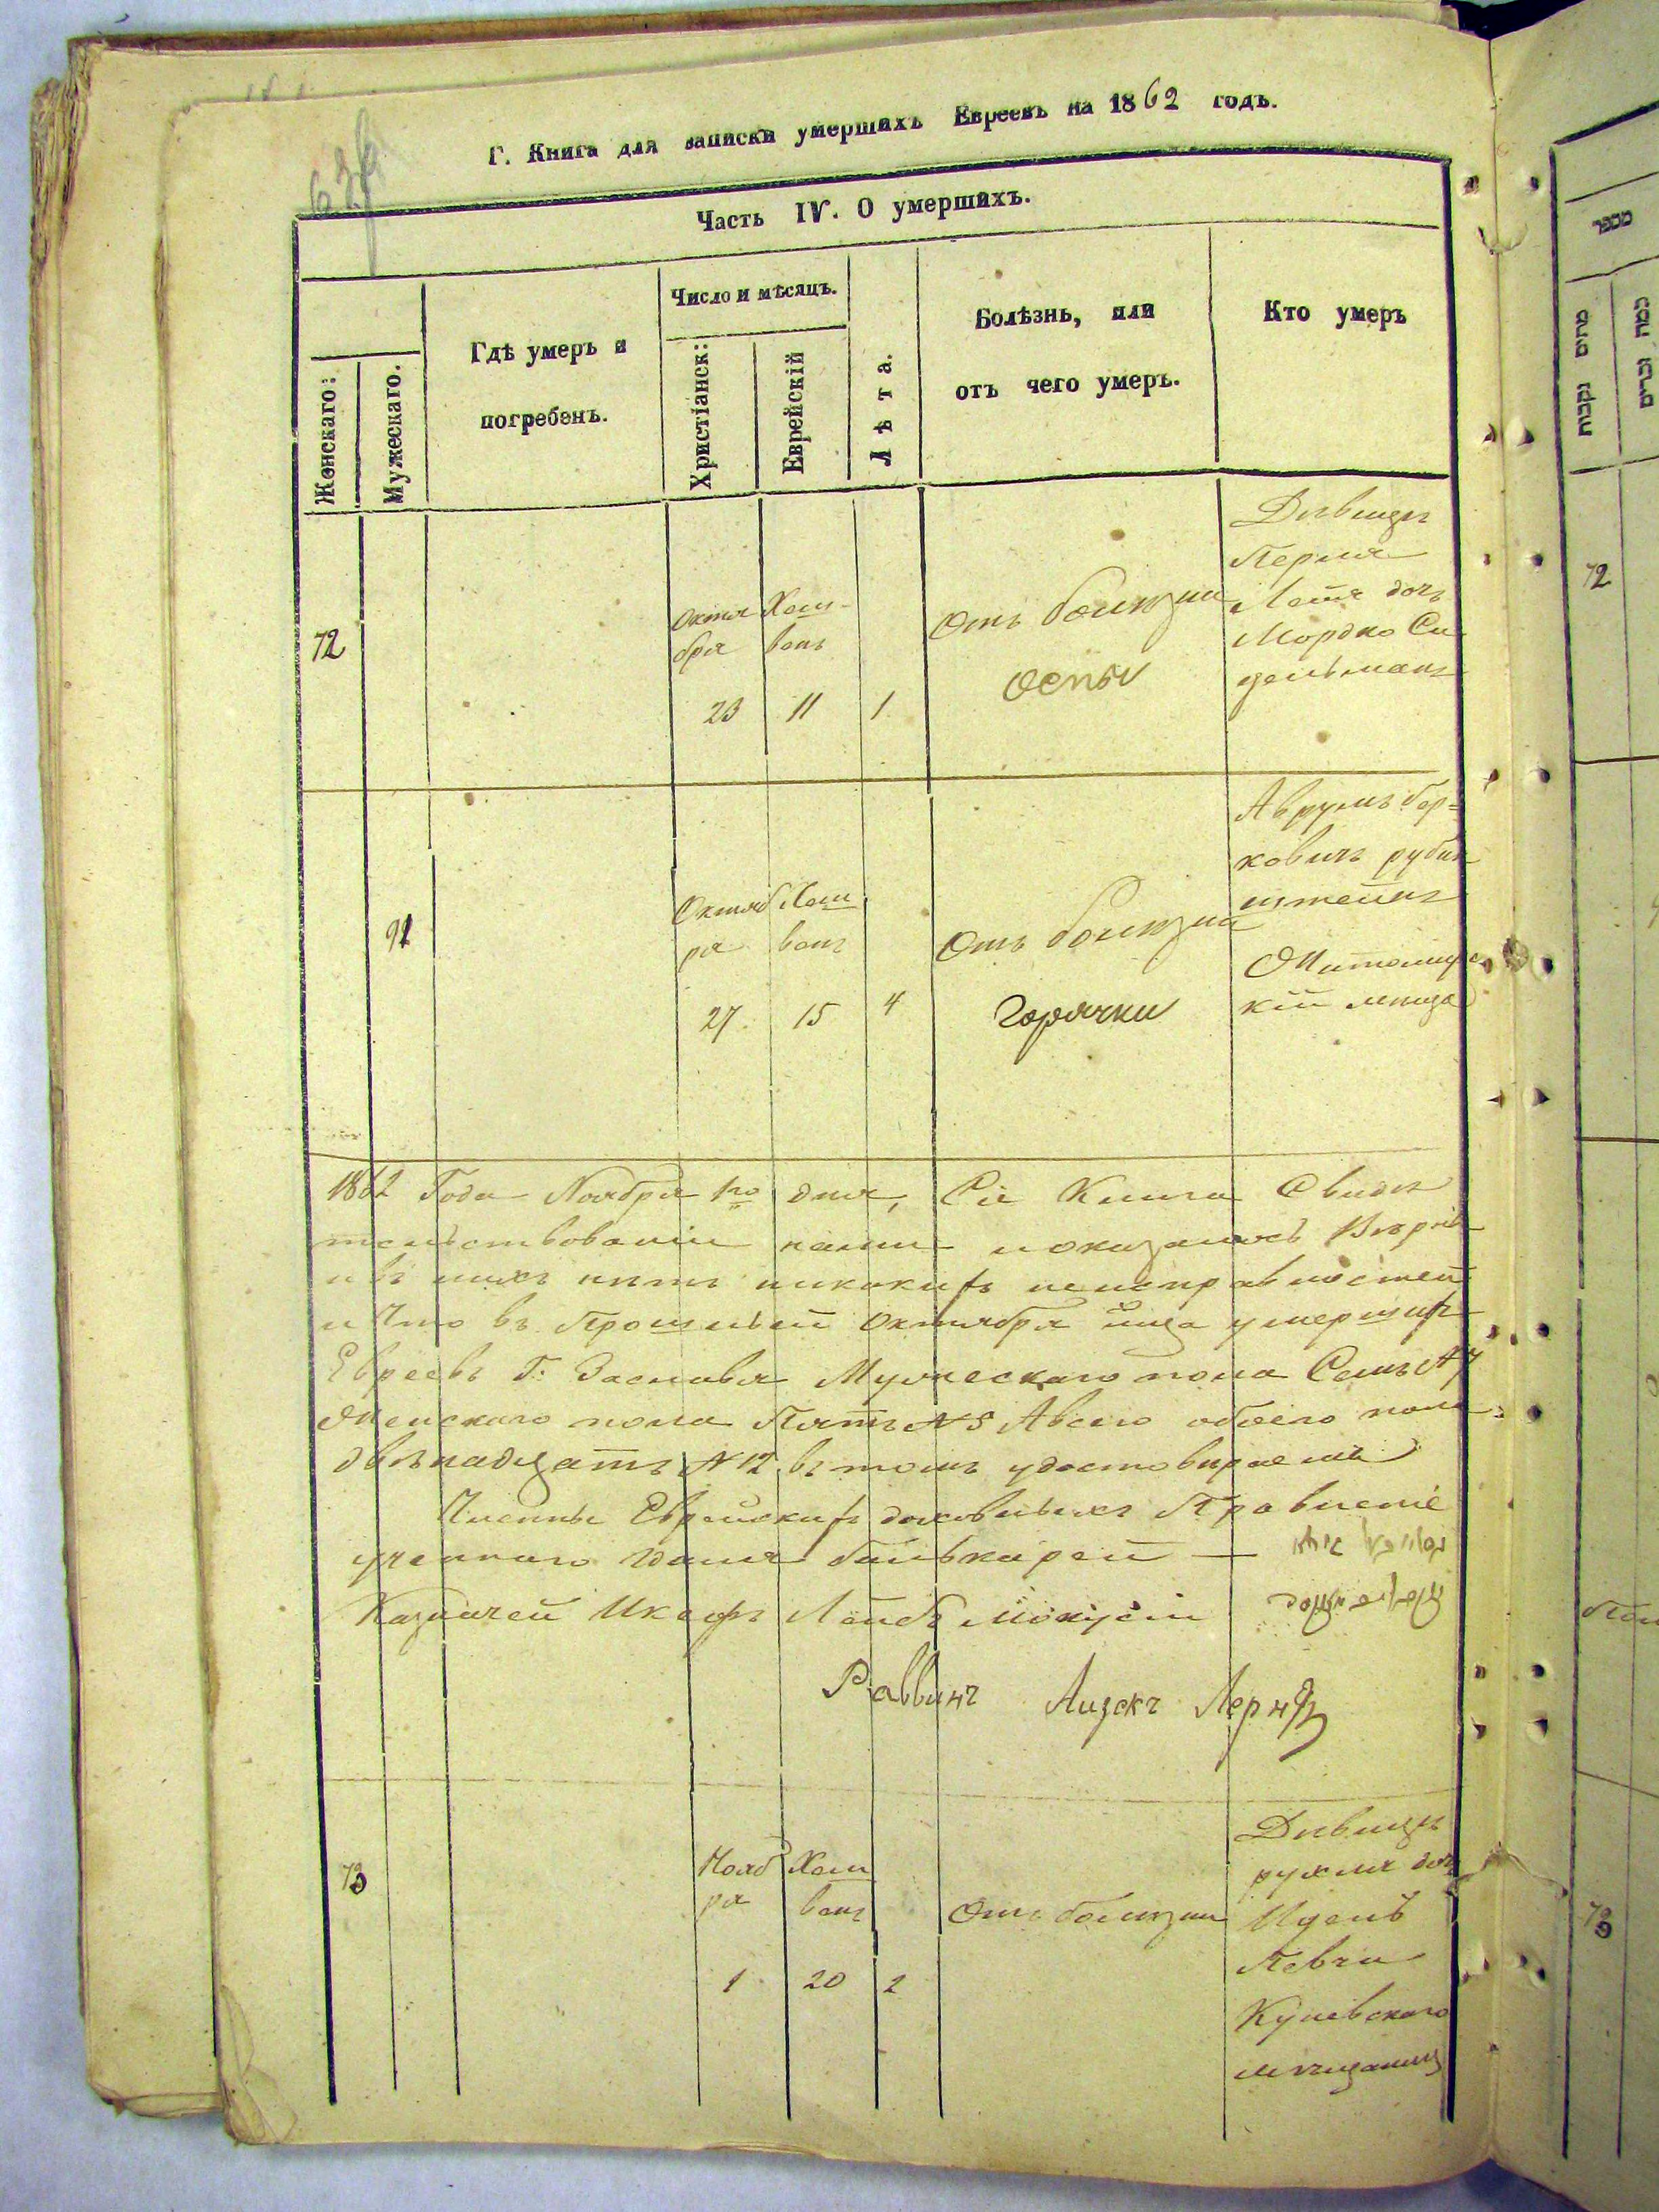 Г. Книга для записки умершихъ Евреевъ на 1862 годъ.
Часть IV. О умершихъ.
Женскаго:
Мужескаго.
Гдѣ умеръ и
погребенъ.
Число и мѣсяцъ.
Христіанск:
Еврейскій
Лѣта.
Болѣзнь, или
отъ чего умеръ.
Кто умеръ
72
Октя
бря
23
Хеш-
ванъ
11
1
Отъ болѣзни
оспы
Дѣвица
Перля
дочь
Мордко
91
Октяб
ря
27
Хеш
ванъ
15
4
Отъ болѣзни
Горячки
Аврумъ Бер=
ковичъ рубин
штейнъ
Житомирс
кій мѣща
1862 Года Ноября 1го дня, Сія Книга Свидѣ
тельствованіи нами и оказалось Вѣрнѣ
нѣтъ никакихъ неисправностей
и Что въ Прошлый Октября мца умершихъ
Евреевъ Г: Заславля Мужескаго пола Семь N 7
Женскаго пола Пять N 5 Авсего обоего пола
двѣнадцать N 12 въ томъ удостовѣряемъ
Члены Еврейскихъ Правленіе
ученнаго
Казначей Лейбъ
Раввинъ Айзекъ Лернеръ
73
Нояб
ря
1
Хеш
ванъ
20
2
Отъ болѣзни
Дѣвица
рухля дочь
Певчи
Куневскаго
мѣщаниц
מספר
מתים
נקבות
זכרים
72
73